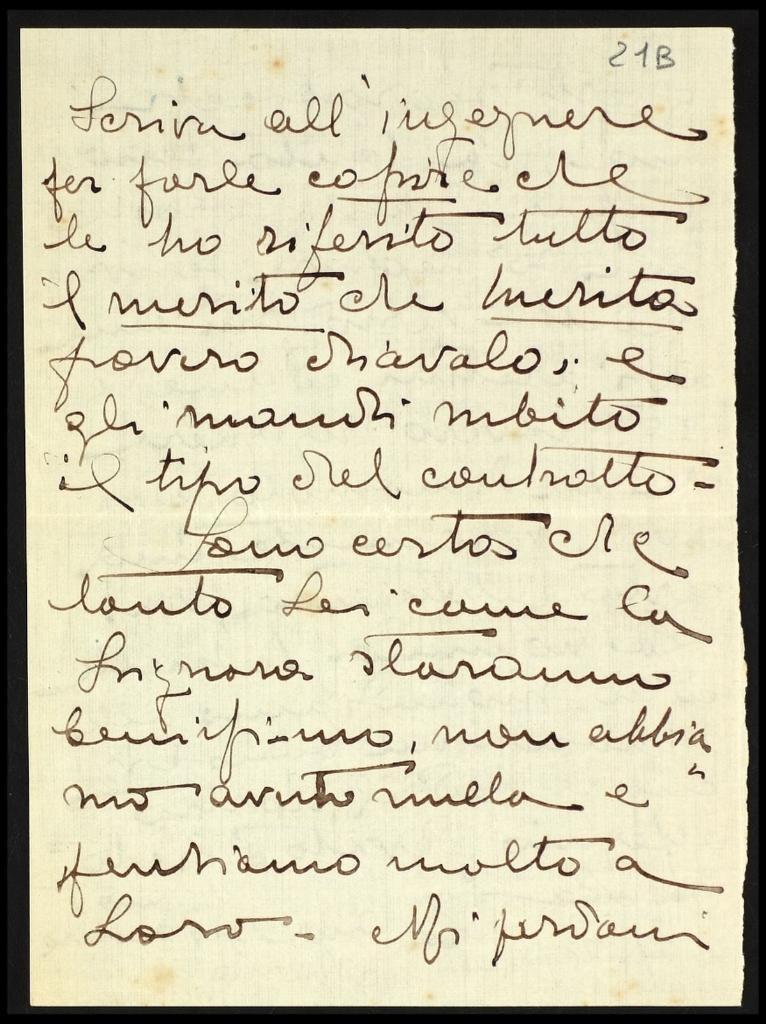 21B
Scriva all'ingegnere
per farle capire che
le ho riferito tutto
il merito che merita
povero diavalo, e
gli mandi subito
il tipo del contratto=
Sono certa che
tanto Lei come la
Signora staranno
benissimo, non abbia
mo avuto nulla e "
pensiamo molto a
Loro - Mi perdoni